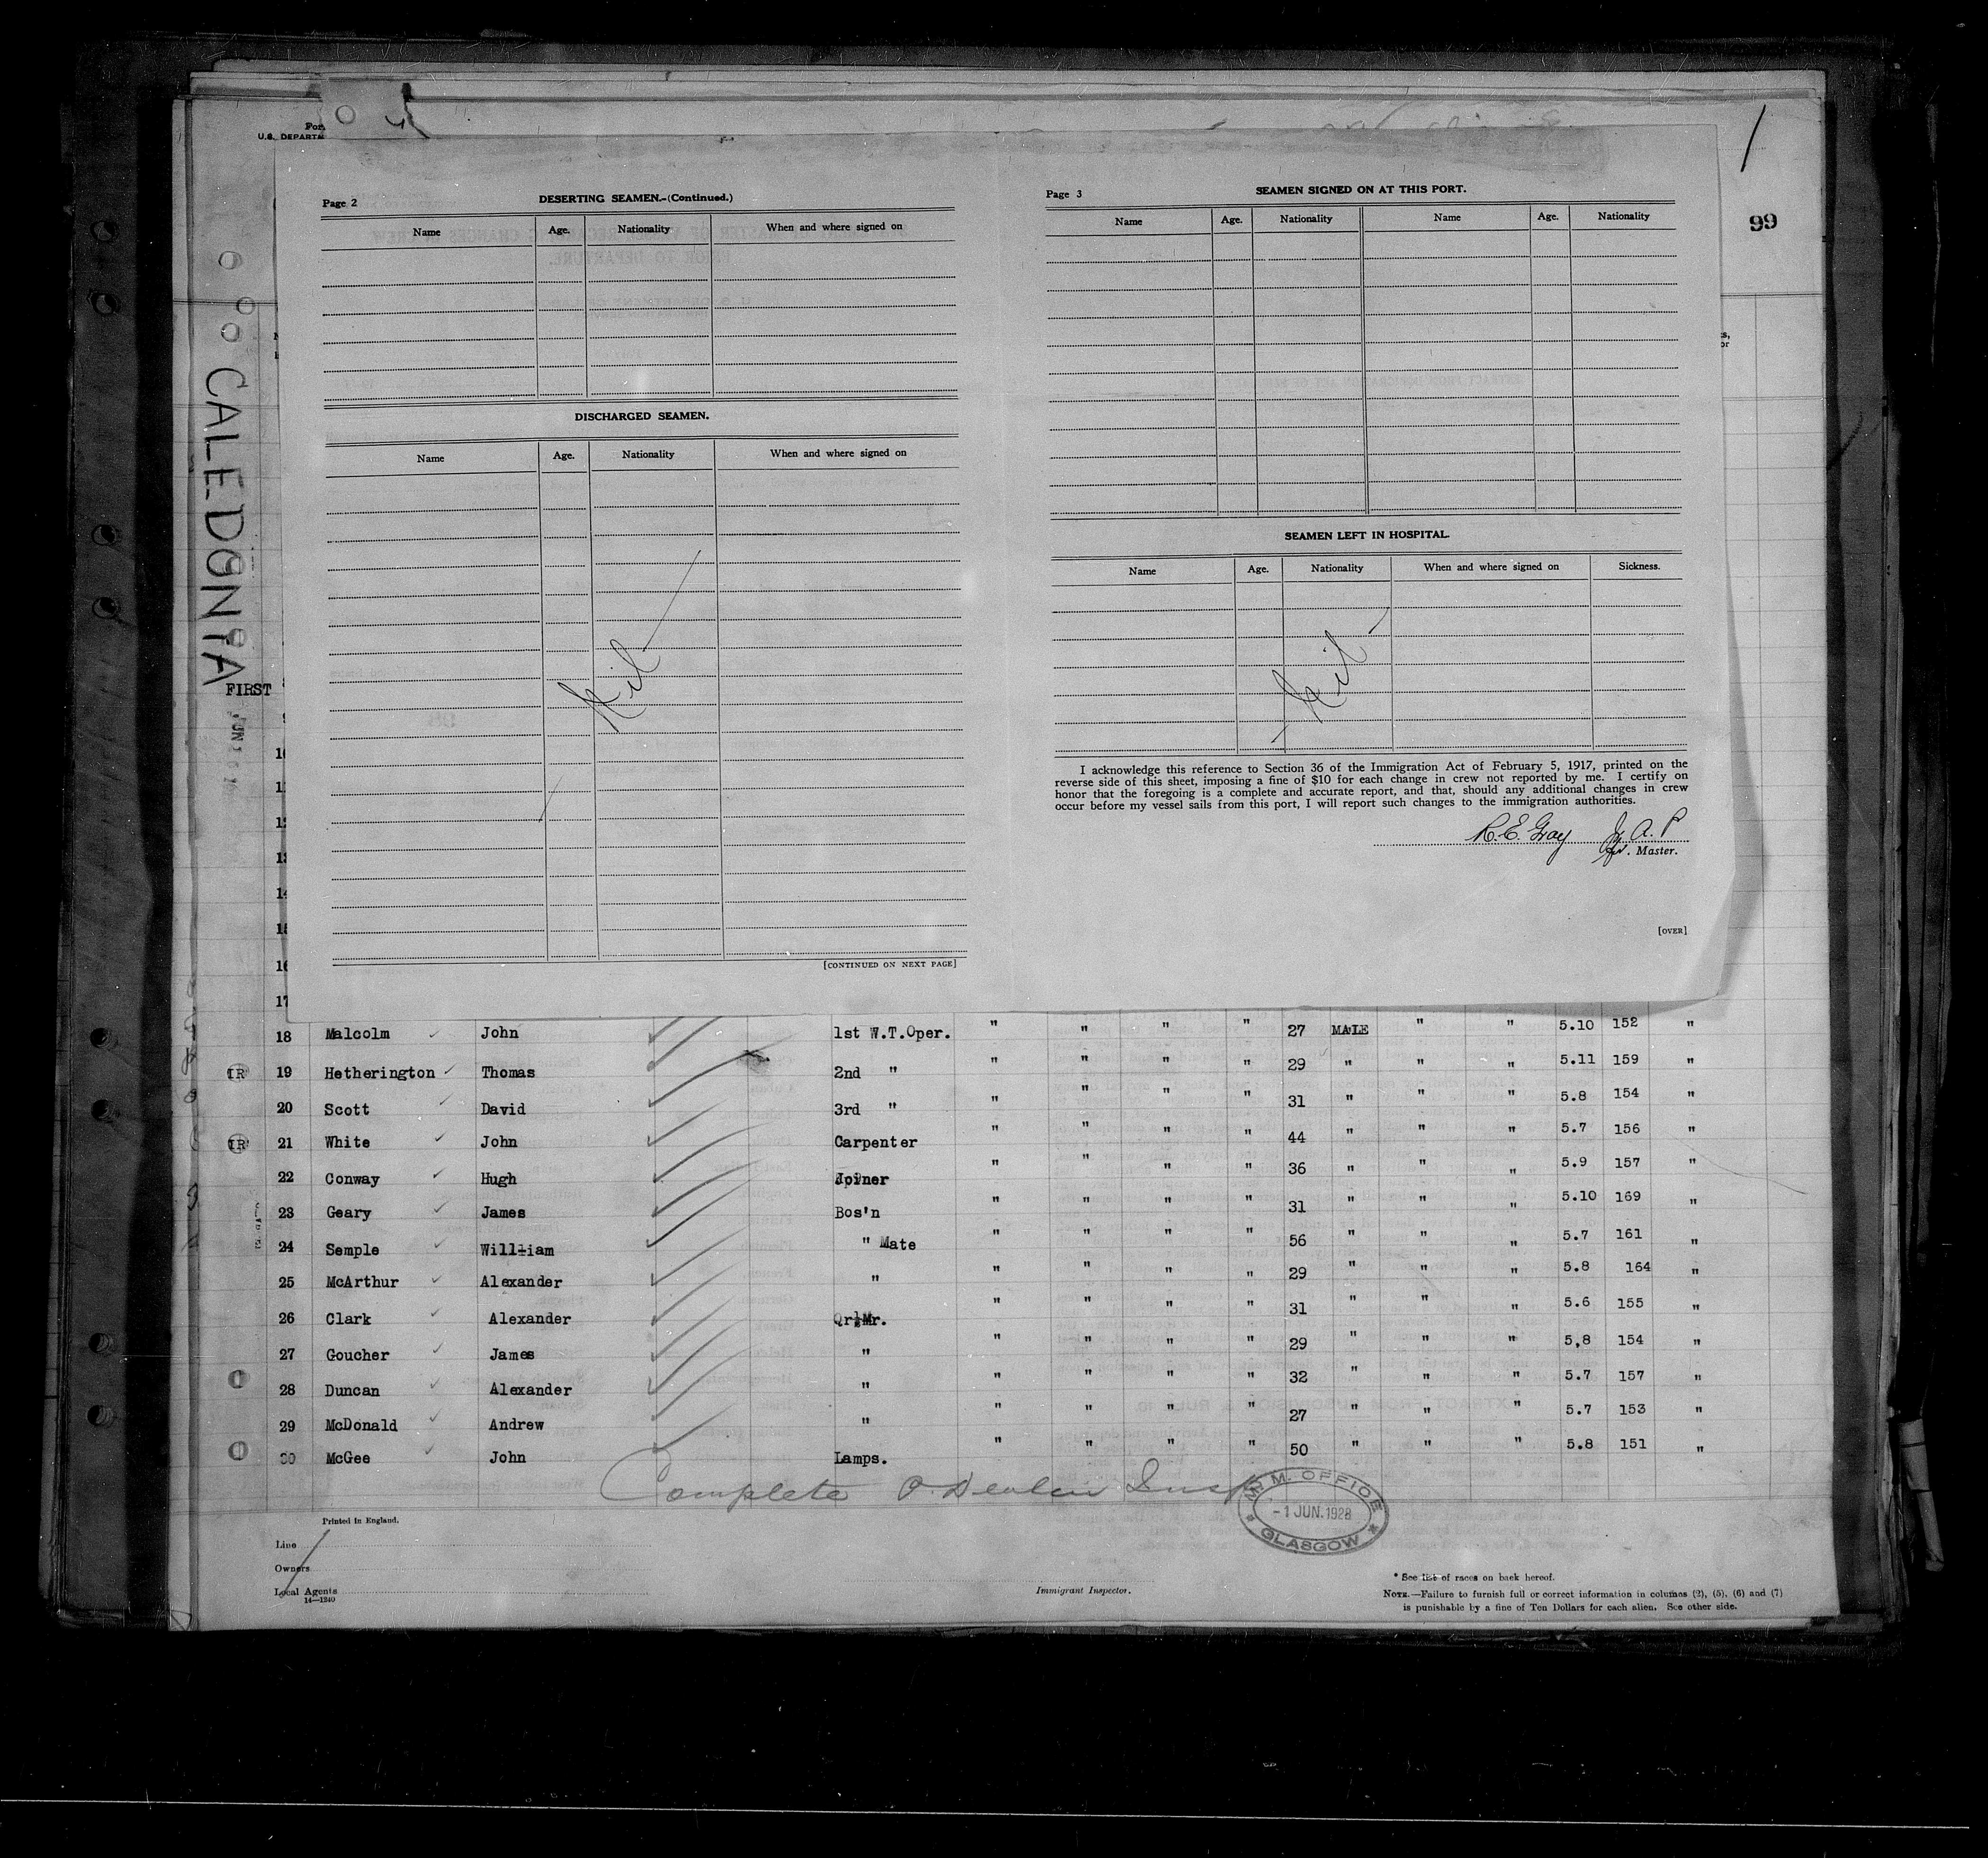 For
U.S. DEPARTM
99
CALEDONIA
FIRST
Page 2
DESERTING SEAMEN.-(Continued.)
Name Age. Nationality When and where signed on
DISCHARGED SEAMEN.
Name Age. Nationality When and where signed on
Nil
[CONTINUED ON NEXT PAGE]
Page 3
SEAMEN SIGNED ON AT THIS PORT.
Name Age. Nationality Name Age. Nationality
SEAMEN LEFT IN HOSPITAL.
Name Age. Nationality When and where signed on Sickness.
Nil
I acknowledge this reference to Section 36 of the Immigration Act of February 5, 1917, printed on the
reverse side of this sheet, imposing a fine of $10 for each change in crew not reported by me. I certify on
honor that the foregoing is a complete and accurate report, and that, should any additional changes in crew
occur before my vessel sails from this port, I will report such changes to the immigration authorities.
R.E. Gray
Master.
[OVER]
18 Malcolm John 1st W.T.Oper. " " " " 27 MALE " " 5.10 152 "
IR 19 Hetherington Thomas 2nd " " " " " 29 " " " 5.11 159 "
20 Scott David 3rd " " " " " 31 " " " 5.8 154 "
IR 21 White John Carpenter " " " " 44 " " " 5.7 156 "
22 Conway Hugh Joiner " " " " 36 " " " 5.9 157 "
23 Geary James Bos'n " " " " 31 " " " 5.10 169 "
24 Semple William " Mate " " " " 56 " " " 5.7 161 "
25 McArthur Alexander " " " " " 29 " " " 5.8 164 "
26 Clark Alexander Qr.Mr. " " " " 31 " " " 5.6 155 "
27 Goucher James " " " " " 29 " " " 5,8 154 "
28 Duncan Alexander " " " " " 32 " " " 5.7 157 "
29 McDonald Andrew " " " " " 27 " " " 5.7 153 "
30 McGee John Lamps. " " " " 50 " " " 5.8 151 "
Complete
M. M. OFFICE
-1 JUN.1928
GLASGOW
Printed in England.
Line
Owners
Local Agents
14—1240
Immigrant Inspector.
* See list of races on back hereof.
NOTE.—Failure to furnish full or correct information in columns (2), (5), (6) and (7)
is punishable by a fine of Ten Dollars for each alien. See other side.